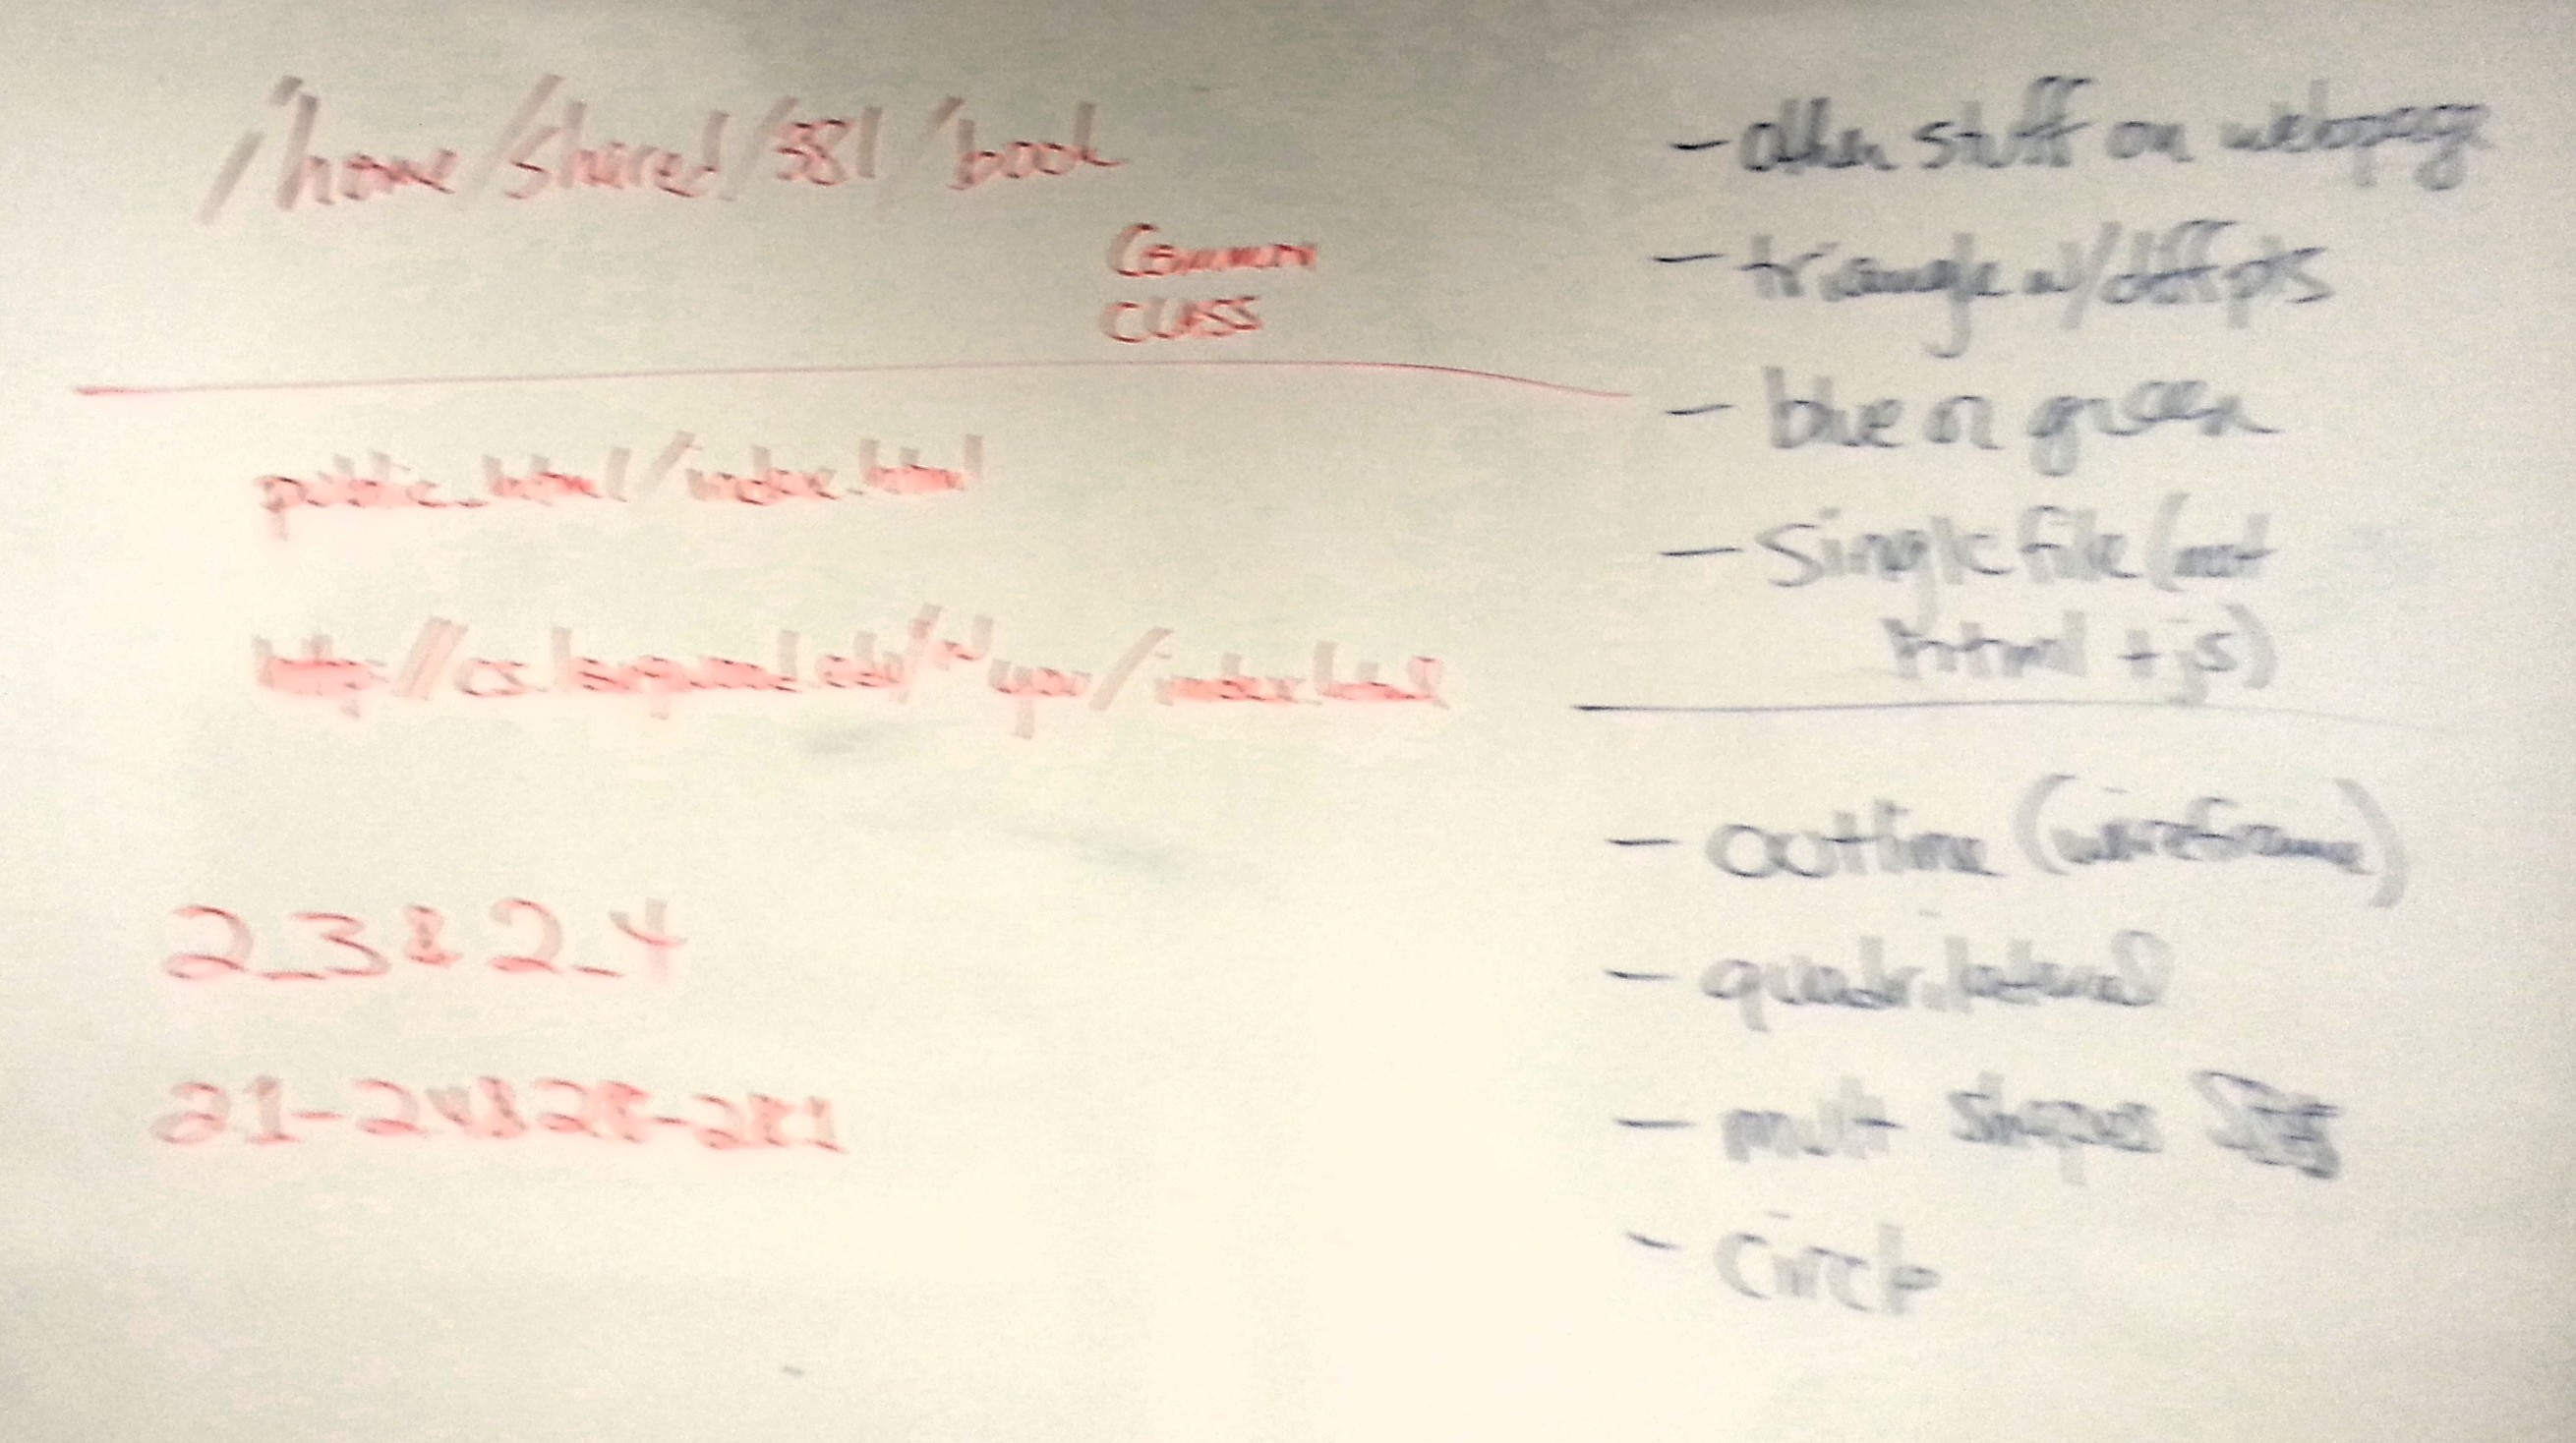 /home/shared/381/book
Common
CLASS
public_html/index.html
http://cs.longwood.edu/~you/index.html
2_3 & 2_4
- other stuff on webpage
- triangle w/diff pts
- blue on green
- single file (not
html + js)
- outline (wireframe)
- quadrilateral
- mult shapes
- circle